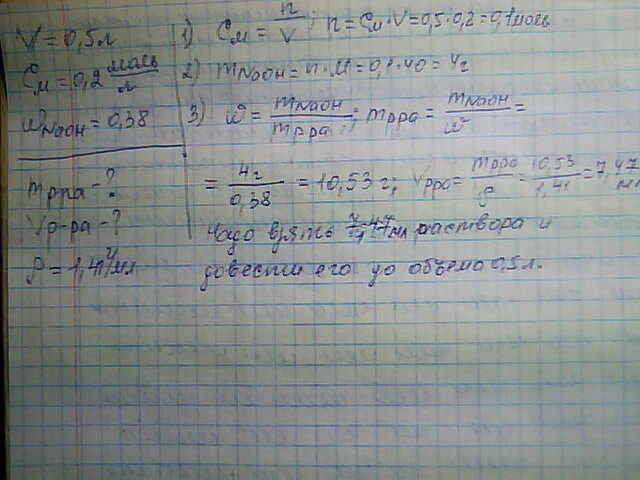 V = 0,5 л
Cм = 0,2 моль/л
ωNaOH = 0,38
mр-ра - ?
Vр-ра - ?
ρ = 1,41 г/мл
1) Cм = n/V; n = Cм · V = 0,5 · 0,2 = 0,1 моль
2) mNaOH = n · M = 0,1 · 40 = 4 г
3) ω = mNaOH/mр-ра; mр-ра = mNaOH/ω =
= 4 г/0,38 = 10,53 г; Vр-ра = mр-ра/ρ = 10,53/1,41 = 7,47 мл
Надо взять 7,47 мл раствора и
довести его до объема 0,5 л.